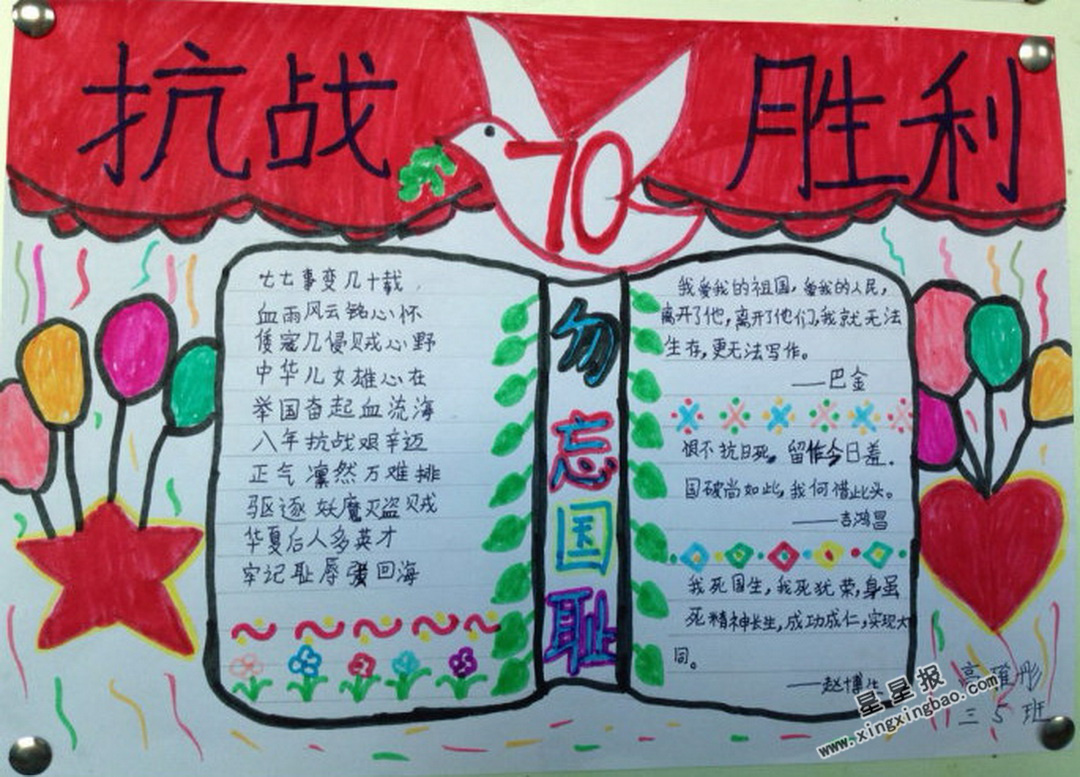 抗战 70 胜利
七七事变几十载
血雨风云铭心怀
倭寇几侵贼心野
中华儿女雄心在
举国奋起血流海
八年抗战艰辛迈
正气凛然万难排
驱逐妖魔灭盗贼
华夏后人多英才
牢记耻辱强回海
勿忘国耻
我爱我的祖国，爱我的人民，
离开了他，离开了他们，我就无法
生存，更无法写作。
——巴金
恨不抗日死，留作今日羞。
国破尚如此，我何惜此头。
——吉鸿昌
我死国生，我死犹荣，身虽
死精神长生，成功成仁，实现大
同。
——赵博生
高雅彤
三5班
星星报
www.xingxingbao.com